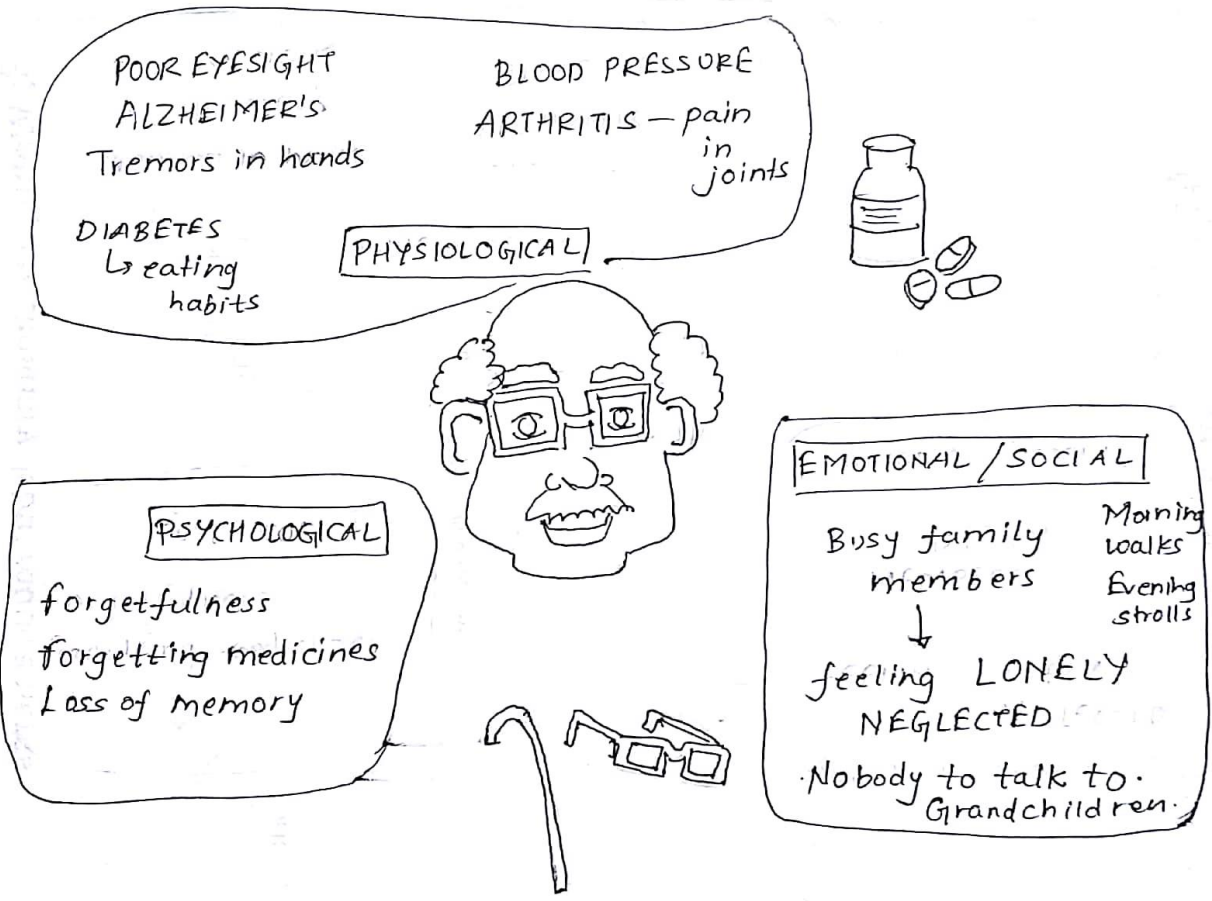 POOR EYESIGHT
ALZHEIMER'S
Tremors in hands
DIABETES
↳ eating
habits
BLOOD PRESSURE
ARTHRITIS – pain
in
joints
PHYSIOLOGICAL
PSYCHOLOGICAL
forgetfulness
forgetting medicines
Loss of memory
EMOTIONAL / SOCIAL
Busy family
members
↓
feeling LONELY
NEGLECTED
Morning
walks
Evening
strolls
·Nobody to talk to·
Grandchildren·